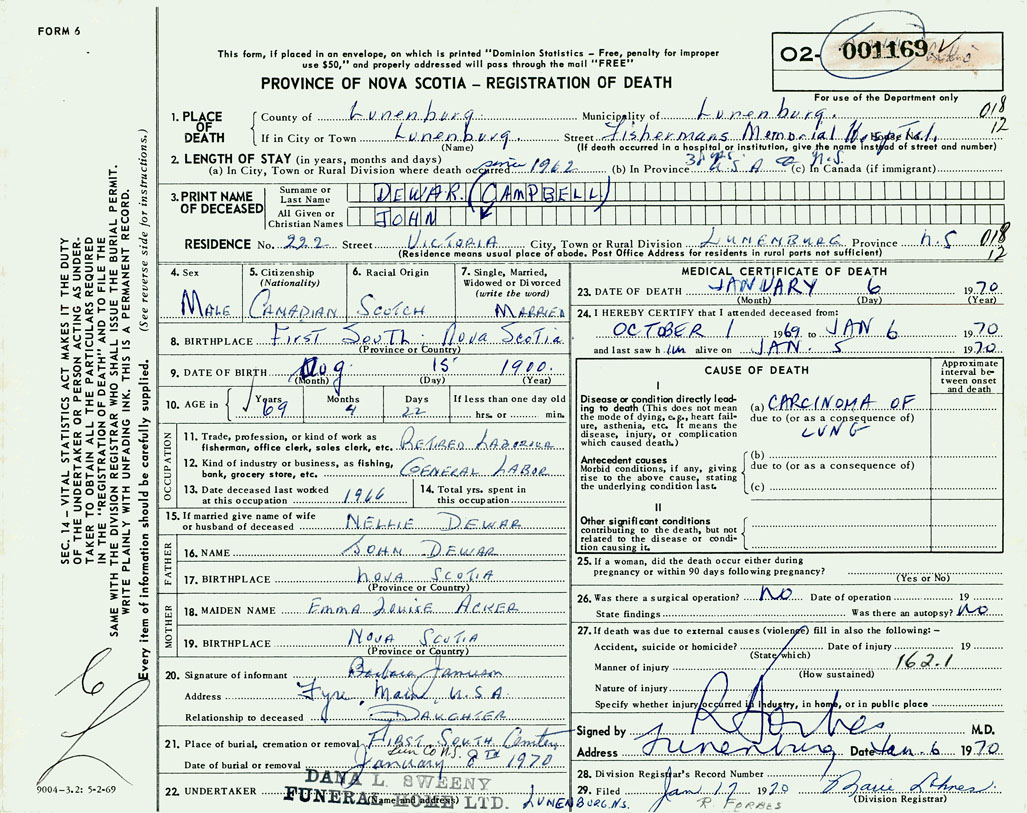 FORM 6
This form, if placed in an envelope, on which is printed "Dominion Statistics – Free, penalty for improper
use $50," and properly addressed will pass through the mail "FREE"
PROVINCE OF NOVA SCOTIA – REGISTRATION OF DEATH
02- 001169
For use of the Department only
018
12
1. PLACE OF DEATH
County of Lunenburg. Municipality of Lunenburg.
If in City or Town Lunenburg. Street Fishermans Memorial Hospital.
(Name) (If death occurred in a hospital or institution, give the name instead of street and number)
2. LENGTH OF STAY (in years, months and days)
(a) In City, Town or Rural Division where death occurred since 1962 (b) In Province 38 yrs. U.S.A N.S. (c) In Canada (if immigrant)
3. PRINT NAME OF DECEASED
Surname or Last Name DEWAR. (CAMPBELL)
All Given or Christian Names JOHN
RESIDENCE No. 222 Street VICTORIA City, Town or Rural Division LUNENBURG Province N.S 018
(Residence means usual place of abode. Post Office Address for residents in rural parts not sufficient) 12
4. Sex MALE
5. Citizenship (Nationality) CANADIAN
6. Racial Origin SCOTCH
7. Single, Married, Widowed or Divorced (write the word) MARRIED
8. BIRTHPLACE First South Nova Scotia
(Province or Country)
9. DATE OF BIRTH Aug. 15 1900.
(Month) (Day) (Year)
10. AGE in Years 69 Months 4 Days 22 If less than one day old hrs. or min.
OCCUPATION
11. Trade, profession, or kind of work as fisherman, office clerk, sales clerk, etc. RETIRED LABORER
12. Kind of industry or business, as fishing, bank, grocery store, etc. GENERAL LABOR
13. Date deceased last worked at this occupation 1966
14. Total yrs. spent in this occupation
15. If married give name of wife or husband of deceased NELLIE DEWAR
FATHER
16. NAME JOHN DEWAR
17. BIRTHPLACE NOVA SCOTIA
(Province or Country)
MOTHER
18. MAIDEN NAME EMMA LOUISE ACKER
19. BIRTHPLACE NOVA SCOTIA
(Province or Country)
20. Signature of informant Barbara Jamieson
Address Fyre, Maine, U.S.A.
Relationship to deceased DAUGHTER
21. Place of burial, cremation or removal FIRST SOUTH Cemetery
Lun Co N.S.
Date of burial or removal January 8TH 1970
22. UNDERTAKER DANA L. SWEENY
FUNERAL HOME LTD. LUNENBURG N.S.
(Name and address)
MEDICAL CERTIFICATE OF DEATH
23. DATE OF DEATH JANUARY 6 1970
(Month) (Day) (Year)
24. I HEREBY CERTIFY that I attended deceased from:
OCTOBER 1 1969 to JAN 6 1970
and last saw him alive on JAN. 5 1970
CAUSE OF DEATH
Approximate interval between onset and death
I
Disease or condition directly leading to death (This does not mean the mode of dying, e.g., heart failure, asthenia, etc. It means the disease, injury, or complication which caused death.)
(a) CARCINOMA OF
due to (or as a consequence of)
LUNG
Antecedent causes
Morbid conditions, if any, giving rise to the above cause, stating the underlying condition last.
(b)
due to (or as a consequence of)
(c)
II
Other significant conditions contributing to the death, but not related to the disease or condition causing it.
25. If a woman, did the death occur either during pregnancy or within 90 days following pregnancy?
(Yes or No)
26. Was there a surgical operation? NO Date of operation 19
State findings Was there an autopsy? NO
27. If death was due to external causes (violence) fill in also the following: –
Accident, suicide or homicide? Date of injury 19
(State which)
Manner of injury 162.1
(How sustained)
Nature of injury
Specify whether injury occurred in Industry, in home, or in public place
Signed by R Forbes M.D.
Address Lunenburg Date Jan. 6 1970
28. Division Registrar's Record Number
29. Filed Jan 12 1970
R. FORBES (Division Registrar)
SEC. 14 – VITAL STATISTICS ACT MAKES IT THE DUTY
OF THE UNDERTAKER OR PERSON ACTING AS UNDER-
TAKER TO OBTAIN ALL THE PARTICULARS REQUIRED
IN THE "REGISTRATION OF DEATH" AND TO FILE THE
SAME WITH THE DIVISION REGISTRAR WHO SHALL ISSUE THE BURIAL PERMIT.
WRITE PLAINLY WITH UNFADING INK. THIS IS A PERMANENT RECORD.
Every item of information should be carefully supplied. (See reverse side for instructions.)
9004–3.2: 5-2-69